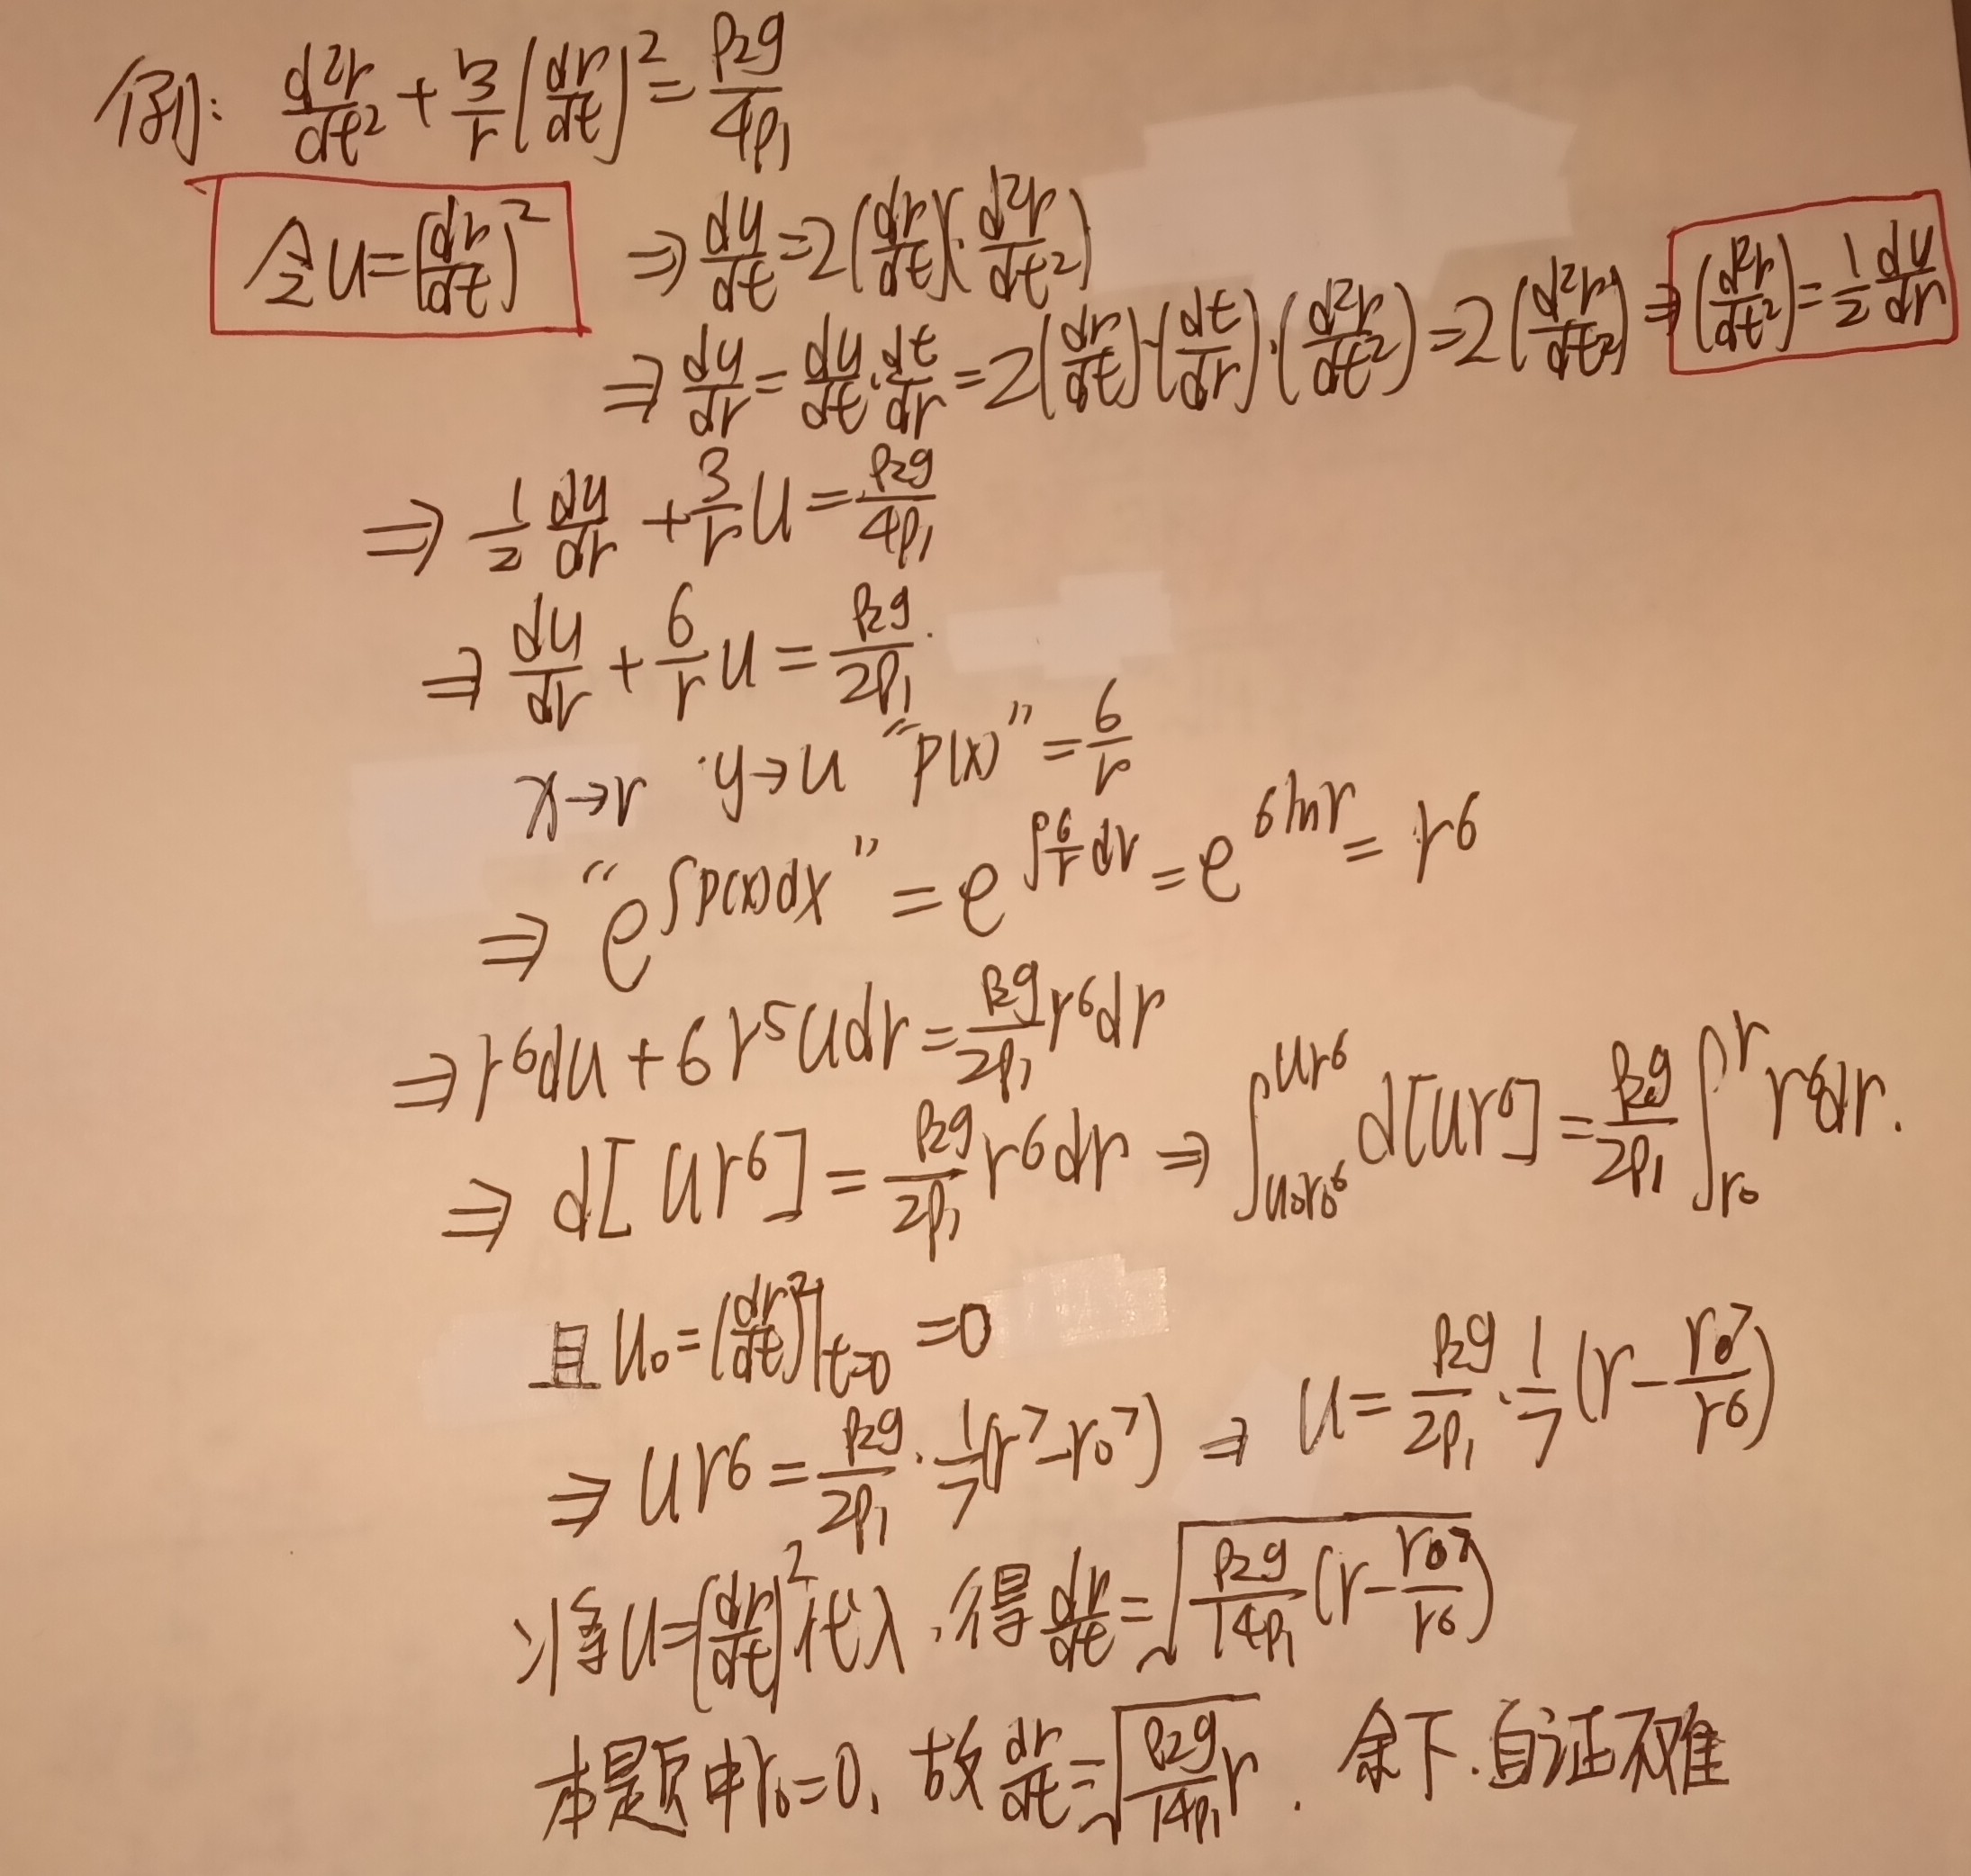 例: d²r/dt² + 3/r (dr/dt)² = ρ₂g/4ρ₁
令u=(dr/dt)² ⇒ du/dt=2(dr/dt)(·d²r/dt²)
⇒ du/dr = du/dt · dt/dr = 2(dr/dt)·(dt/dr)·(d²r/dt²) = 2(d²r/dt²) ⇒ (d²r/dt²) = 1/2 du/dr
⇒ 1/2 du/dr + 3/r u = ρ₂g/4ρ₁
⇒ du/dr + 6/r u = ρ₂g/2ρ₁.
x→r y→u "p(x)" = 6/r
⇒ "e^∫p(x)dx" = e^∫6/r dr = e^6lnr = r⁶
⇒ r⁶du + 6r⁵udr = ρ₂g/2ρ₁ r⁶dr
⇒ d[ur⁶] = ρ₂g/2ρ₁ r⁶dr ⇒ ∫_{u₀r₀⁶}^{ur⁶} d[ur⁶] = ρ₂g/2ρ₁ ∫_{r₀}^{r} r⁶dr.
且u₀=(dr/dt)²|t=0 =0
⇒ ur⁶ = ρ₂g/2ρ₁ · 1/7(r⁷-r₀⁷) ⇒ u = ρ₂g/2ρ₁ · 1/7 (r - r₀⁷/r⁶)
将u=(dr/dt)²代入,得dr/dt=√(ρ₂g/14ρ₁ (r - r₀⁷/r⁶))
本题中r₀=0, 故dr/dt=√(ρ₂g/14ρ₁ r). 余下.自证不难